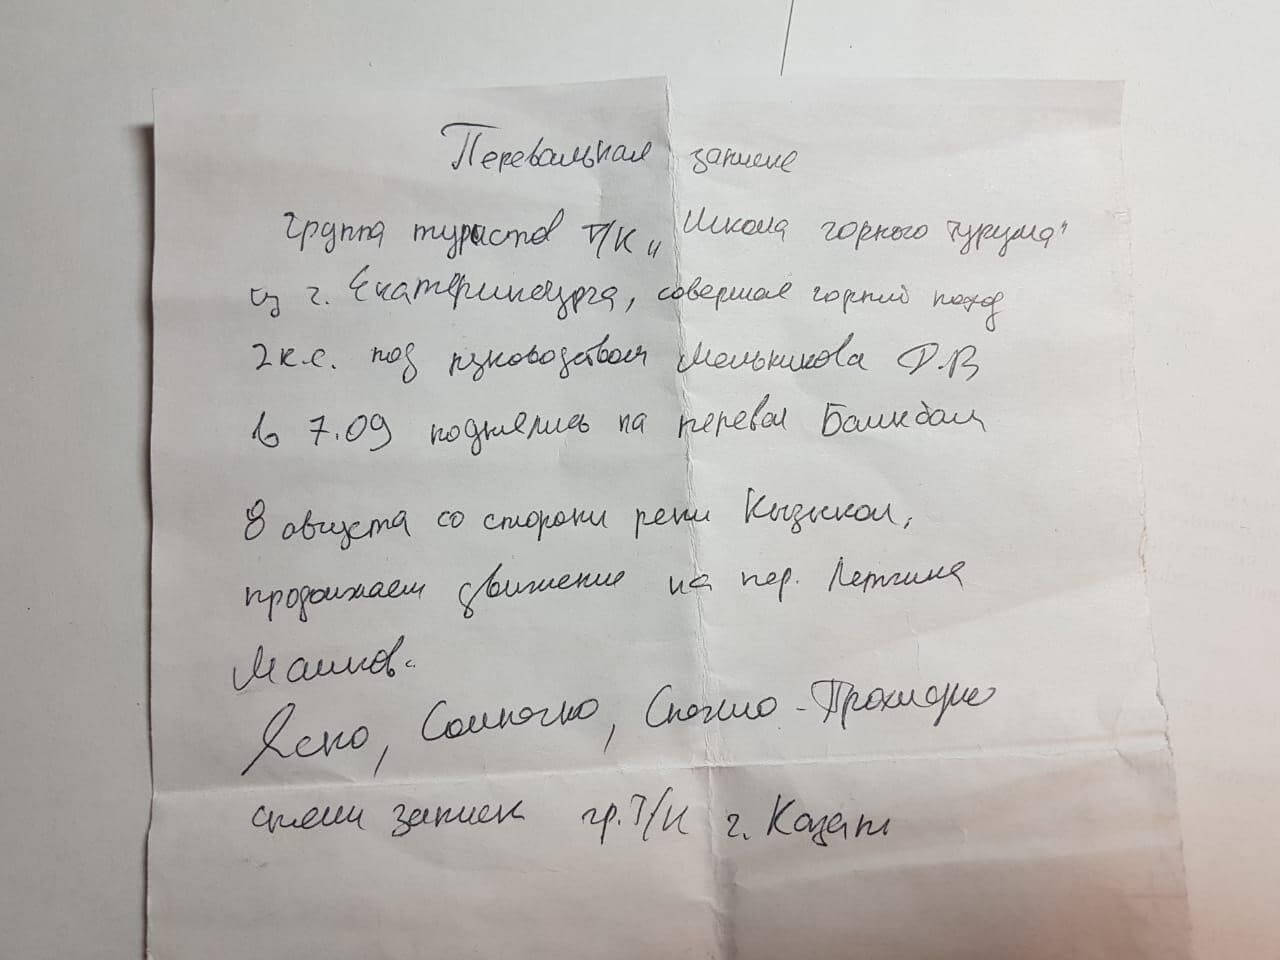 Перевальная записка
Группа туристов Т/К "Школа горного туризма"
из г. Екатеринбурга, совершая горный поход
2 к.с. под руководством Мельникова Д.В
в 7.09 поднялись на перевал
8 августа со стороны реки Кызылкол,
продолжаем движение на пер.
Ясно, Солнечно, Снежно - Прохладно
сняли записку гр. Т/К г. Казань